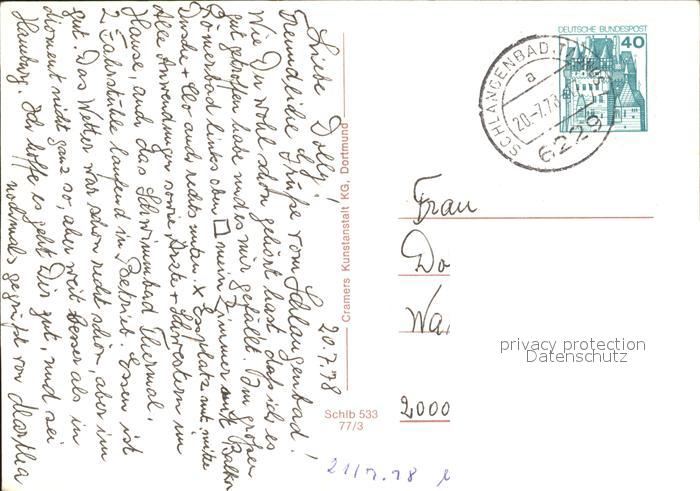 20.7.78
Liebe Dolly!
Freundliche Grüße vom Schlangenbad!
Wie Du wohl schon gehört hast daß ich es
gut getroffen habe und es mir gefällt. Im großen
Römerbad links oben □ mein Zimmer mit Balkon
Dusche + Clo auch rechts unten x Essplatz mit
Alle Anwendungen sowie Ärzte + Schwestern im
Hause, auch das Schwimmbad Thermal.
2 Fahrstühle laufend in Betrieb. Essen ist
gut. Das Wetter war schon recht schön, aber im
Moment nicht ganz so, aber weit besser als in
Hamburg. Ich hoffe es geht Dir gut, und sei
nochmals gegrüßt von Martha
Cramers Kunstanstalt KG, Dortmund
Schlb 533
77/3
DEUTSCHE BUNDESPOST
40
SCHLANGENBAD, TAUNUS 1
a
20.-7.78
6229
Frau
Do
Wa
2000
privacy protection
Datenschutz
21/7.78